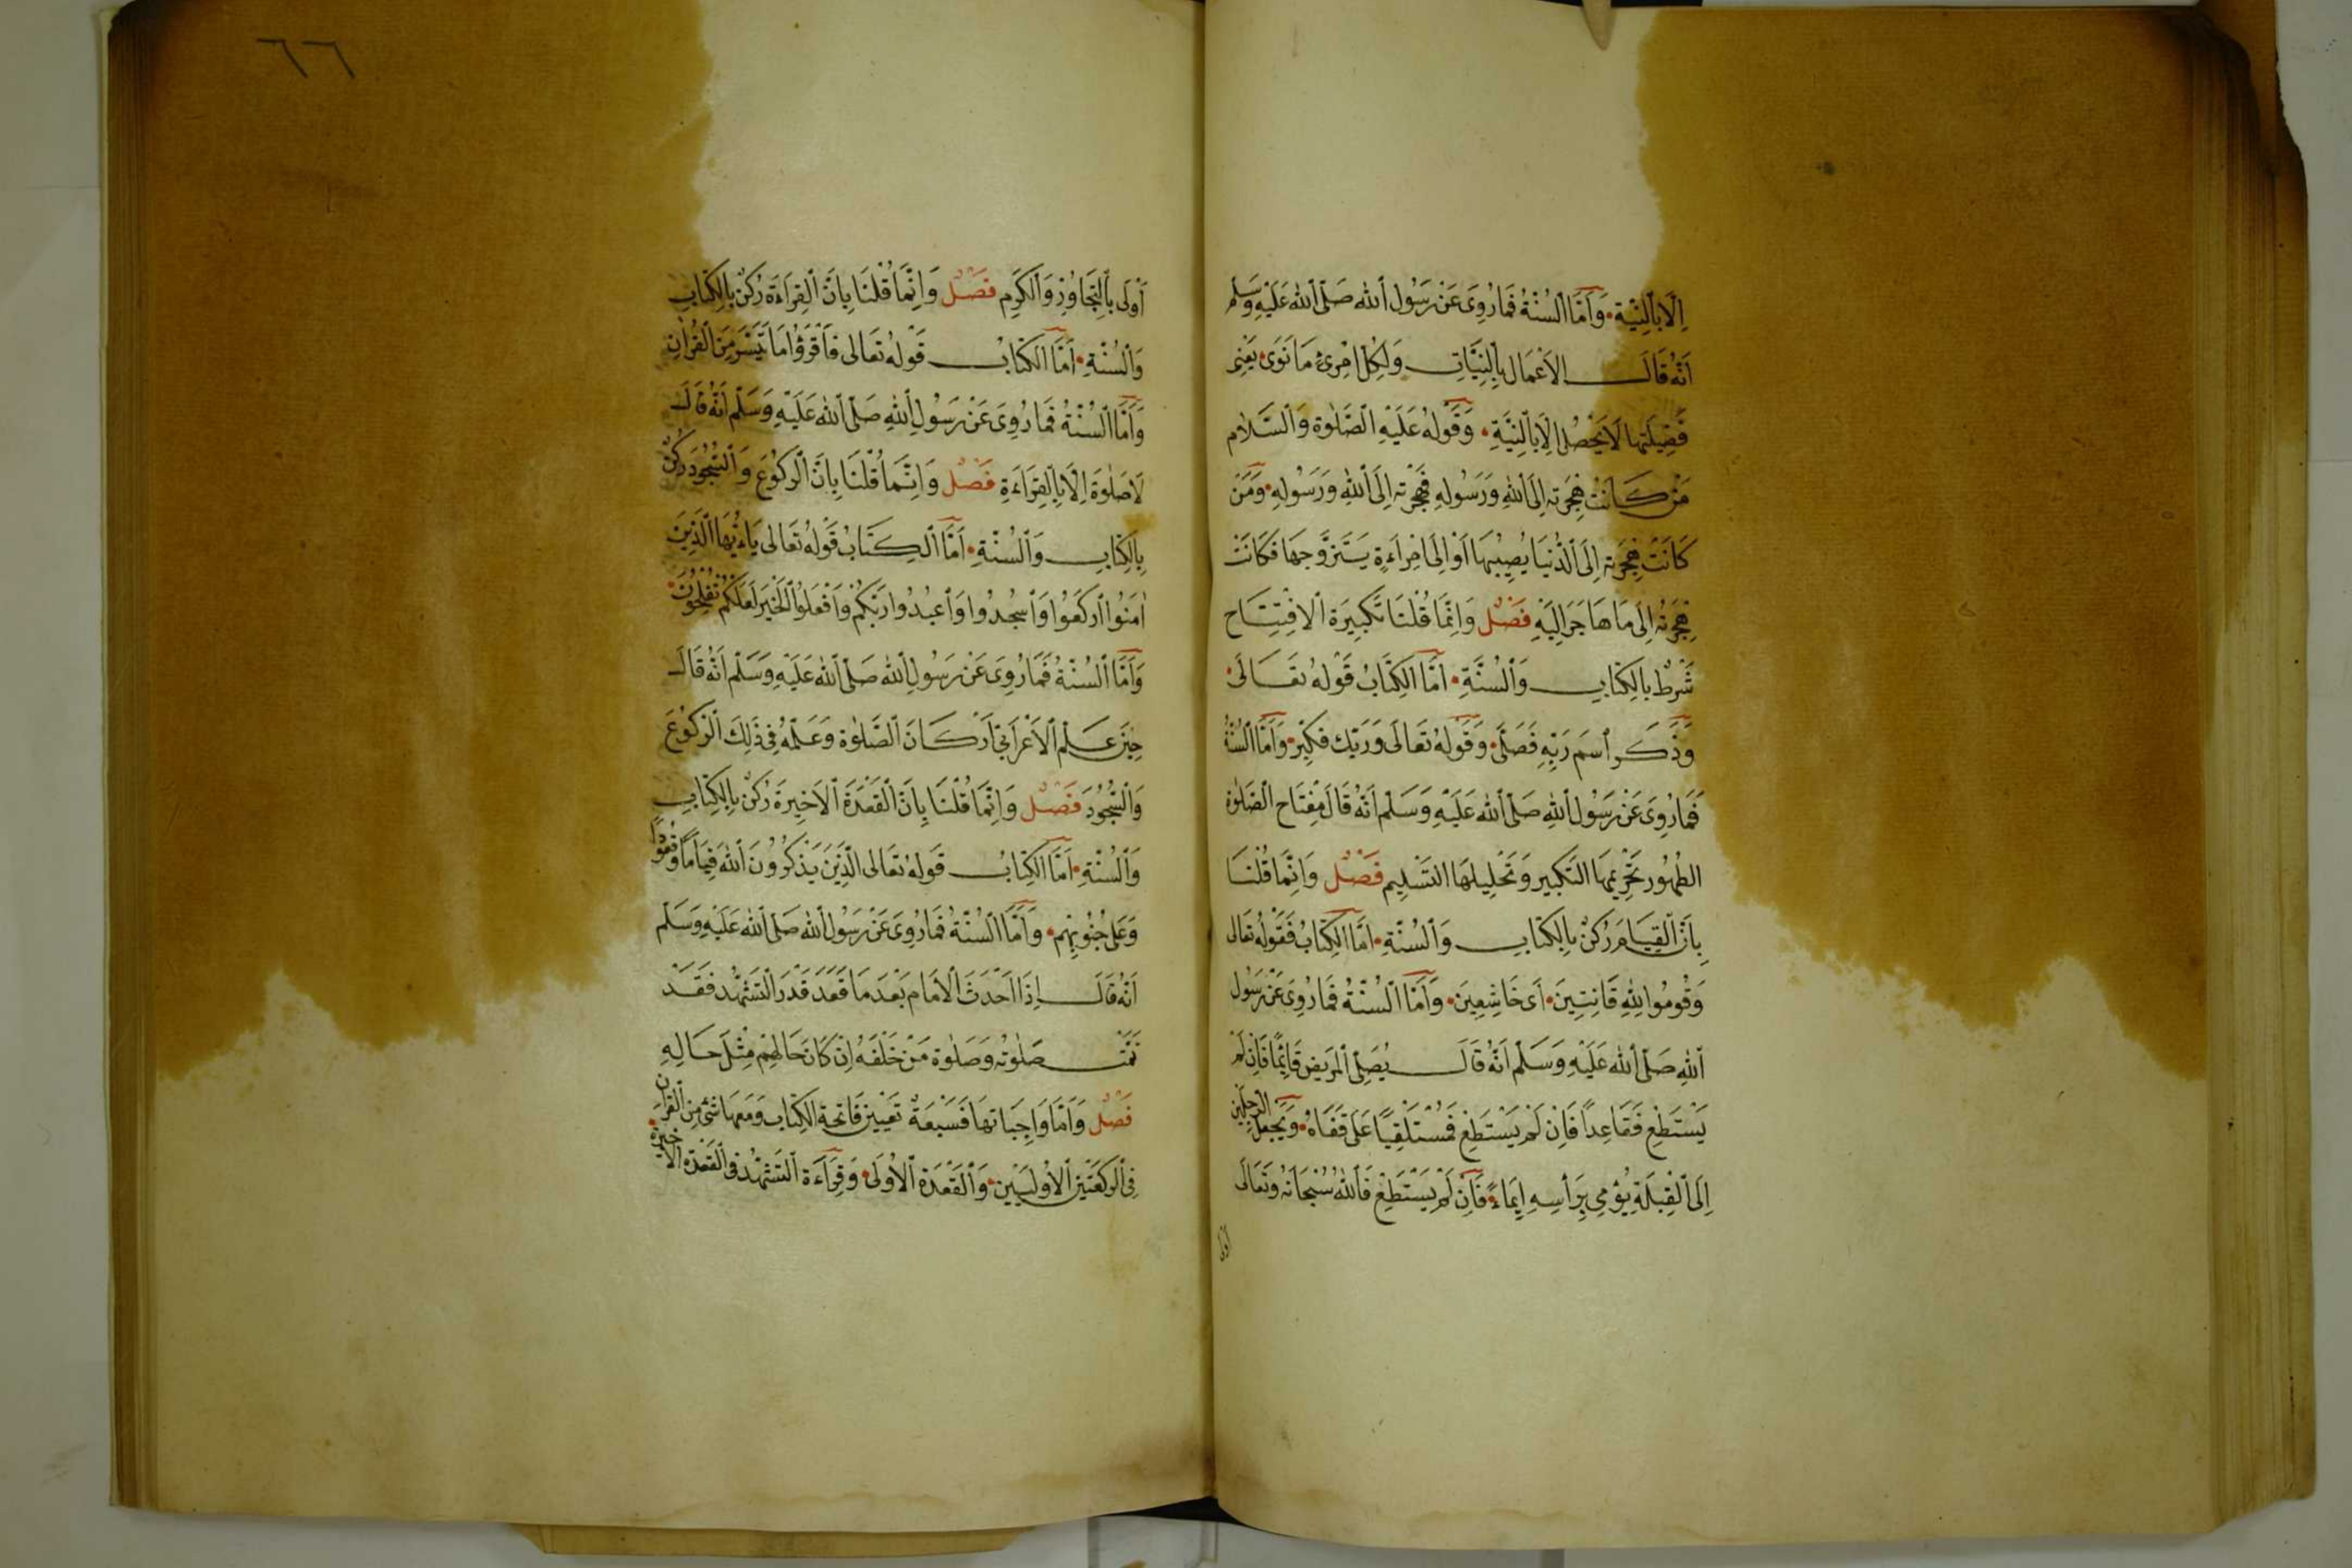 اِلَّا بِالنِّيَّةِ وَاَمَّا السُّنَّةُ فَمَا رُوِىَ عَنْ رَسُولِ اللهِ صَلَّى اللهُ عَلَيْهِ وَسَلَّمَ
اَنَّهُ قَالَ الاَعْمَالُ بِالنِّيَّاتِ وَلِكُلِّ امْرِئٍ مَا نَوَى يَعْنِى
فَضِيلَتَهَا لَا يَحْصُلُ اِلَّا بِالنِّيَّةِ وَقَوْلُهُ عَلَيْهِ الصَّلٰوةُ وَالسَّلَامُ
مَنْ كَانَتْ هِجْرَتُهُ اِلَى اللهِ وَرَسُولِهِ فَهِجْرَتُهُ اِلَى اللهِ وَرَسُولِهِ وَمَنْ
كَانَتْ هِجْرَتُهُ اِلَى الدُّنْيَا يُصِيْبُهَا اَوْ اِلَى امْرَاَءةٍ يَتَزَوَّجُهَا فَكَانَتْ
هِجْرَتُهُ اِلَى مَا هَاجَرَ اِلَيْهِ فَصْلٌ وَاِنَّمَا قُلْنَا تَكْبِيرَةُ الاِفْتِتَاحِ
شَرْطٌ بِالْكِتَابِ وَالسُّنَّةِ اَمَّا الْكِتَابُ قَوْلُهُ تَعَالَى
وَذَكَرَ اسْمَ رَبِّهِ فَصَلَّى وَقَوْلُهُ تَعَالَى وَرَبَّكَ فَكَبِّرْ وَاَمَّا السُّنَّةُ
فَمَا رُوِىَ عَنْ رَسُولِ اللهِ صَلَّى اللهُ عَلَيْهِ وَسَلَّمَ اَنَّهُ قَالَ مِفْتَاحُ الصَّلٰوةِ
الطُّهُورُ تَحْرِيمُهَا التَّكْبِيرُ وَتَحْلِيلُهَا التَّسْلِيمُ فَصْلٌ وَاِنَّمَا قُلْنَا
بِاَنَّ الْقِيَامَ رُكْنٌ بِالْكِتَابِ وَالسُّنَّةِ اَمَّا الْكِتَابُ فَقَوْلُهُ تَعَالَى
وَقُومُوا لِلّٰهِ قَانِتِينَ اَى خَاشِعِينَ وَاَمَّا السُّنَّةُ فَمَا رُوِىَ عَنْ رَسُولِ
اللهِ صَلَّى اللهُ عَلَيْهِ وَسَلَّمَ اَنَّهُ قَالَ يُصَلِّى الْمَرِيضُ قَائِمًا فَاِنْ لَمْ
يَسْتَطِعْ فَقَاعِدًا فَاِنْ لَمْ يَسْتَطِعْ فَمُسْتَلْقِيًا عَلَى قَفَاهُ وَيَجْعَلُ الرِّجْلَيْنِ
اِلَى الْقِبْلَةِ يُؤْمِى بِرَأْسِهِ اِيمَاءً فَاِنْ لَمْ يَسْتَطِعْ فَاللهُ سُبْحَانَهُ وَتَعَالَى
اَوْلَى
٦٦
اَوْلَى بِالتَّجَاوُزِ وَالْكَرَمِ فَصْلٌ وَاِنَّمَا قُلْنَا بِاَنَّ الْقِرَاءَةَ رُكْنٌ بِالْكِتَابِ
وَالسُّنَّةِ اَمَّا الْكِتَابُ قَوْلُهُ تَعَالَى فَاقْرَؤُا مَا تَيَسَّرَ مِنَ الْقُرْاٰنِ
وَاَمَّا السُّنَّةُ فَمَا رُوِىَ عَنْ رَسُولِ اللهِ صَلَّى اللهُ عَلَيْهِ وَسَلَّمَ اَنَّهُ قَالَ
لَا صَلٰوةَ اِلَّا بِالْقِرَاءَةِ فَصْلٌ وَاِنَّمَا قُلْنَا بِاَنَّ الرُّكُوعَ وَالسُّجُودَ رُكْنٌ
بِالْكِتَابِ وَالسُّنَّةِ اَمَّا الْكِتَابُ قَوْلُهُ تَعَالَى يَاءَيُّهَا الَّذِينَ
اٰمَنُوا ارْكَعُوا وَاسْجُدُوا وَاعْبُدُوا رَبَّكُمْ وَافْعَلُوا الْخَيْرَ لَعَلَّكُمْ تُفْلِحُونَ
وَاَمَّا السُّنَّةُ فَمَا رُوِىَ عَنْ رَسُولِ اللهِ صَلَّى اللهُ عَلَيْهِ وَسَلَّمَ اَنَّهُ قَالَ
حِينَ عَلَّمَ الاَعْرَابِيَّ اَرْكَانَ الصَّلٰوةِ وَعَلَّمَهُ فِى ذَلِكَ الرُّكُوعَ
وَالسُّجُودَ فَصْلٌ وَاِنَّمَا قُلْنَا بِاَنَّ الْقَعْدَةَ الاَخِيرَةَ رُكْنٌ بِالْكِتَابِ
وَالسُّنَّةِ اَمَّا الْكِتَابُ قَوْلُهُ تَعَالَى الَّذِينَ يَذْكُرُونَ اللهَ قِيَامًا وَقُعُودًا
وَعَلَى جُنُوبِهِمْ وَاَمَّا السُّنَّةُ فَمَا رُوِىَ عَنْ رَسُولِ اللهِ صَلَّى اللهُ عَلَيْهِ وَسَلَّمَ
اَنَّهُ قَالَ اِذَا اَحْدَثَ الاِمَامُ بَعْدَ مَا قَعَدَ قَدْرَ التَّشَهُّدِ فَقَدْ
تَمَّتْ صَلٰوتُهُ وَصَلٰوةُ مَنْ خَلْفَهُ اِنْ كَانَ حَالُهُمْ مِثْلَ حَالِهِ
فَصْلٌ وَاَمَّا وَاجِبَاتُهَا فَسَبْعَةٌ تَعْيِينُ فَاتِحَةِ الْكِتَابِ وَمَعَهَا شَىْءٌ مِنَ الْقُرْاٰنِ
فِى الرَّكْعَتَيْنِ الاُولَيَيْنِ وَالْقَعْدَةُ الاُولَى وَقِرَاءَةُ التَّشَهُّدِ فِى الْقَعْدَةِ الاَخِيرَةِ